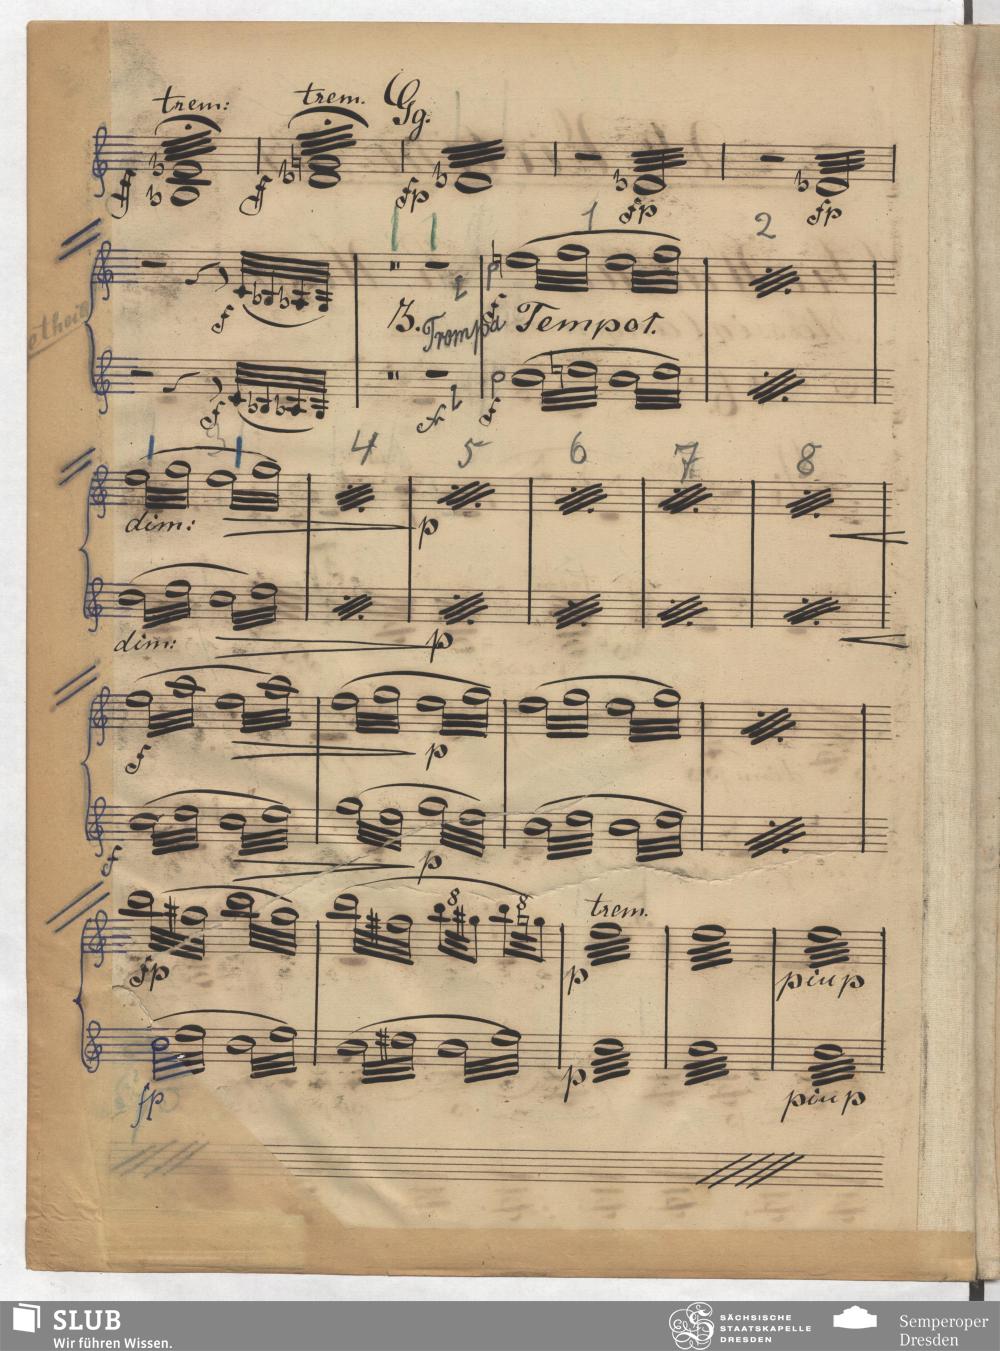 trem: trem. Gg.
ff ff fp fp fp
1 2
f
3. Trompa Tempo I.
f f f
3 4 5 6 7 8
dim: p
dim: p
f p
f p
8 8 trem.
fp p piu p
fp p piu p
SLUB
Wir führen Wissen.
SÄCHSISCHE
STAATSKAPELLE
DRESDEN
Semperoper
Dresden